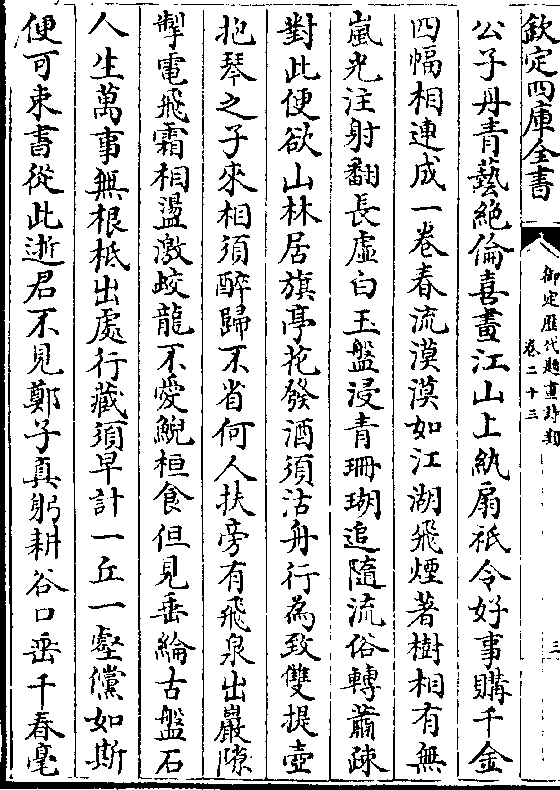 欽定四庫全書
御定歷代題畫詩類
卷二十三
三
公子丹青藝絶倫喜畫江山上紈扇祇令好事購千金
四幅相連成一卷春流漠漠如江湖飛煙著樹相有無
嵐光注射翻長虛白玉盤浸青珊瑚追隨流俗轉蕭疎
對此便欲山林居旗亭花發酒須沽舟行為致雙提壺
抱琴之子來相須醉歸不省何人扶旁有飛泉出巖隙
掣電飛霜相盪激蛟龍不愛鯢桓食但見垂綸古盤石
人生萬事無根柢出處行藏須早計一丘一壑儻如斯
便可束書從此逝君不見鄭子真躬耕谷口垂千春毫